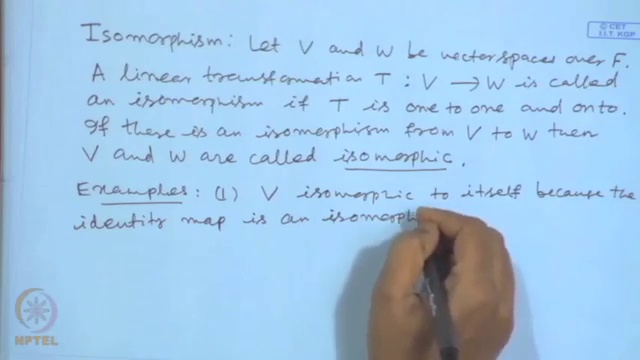 © CET
I.I.T. KGP
Isomorphism: Let V and W be vector spaces over F.
A linear transformation T : V → W is called
an isomorphism if T is one to one and onto.
If there is an isomorphism from V to W then
V and W are called isomorphic.
Examples: (1) V isomorphic to itself because the
identity map is an isomorph
NPTEL